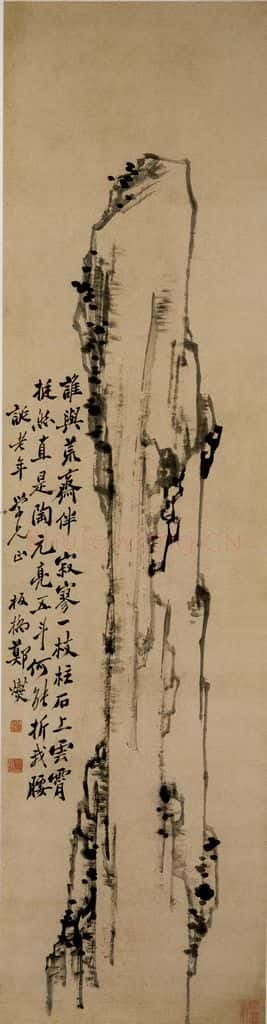 誰與荒齋伴寂寥一枝柱石上雲霄
挺然直是陶元亮五斗何能折我腰
誕老年學兄正 板橋鄭燮